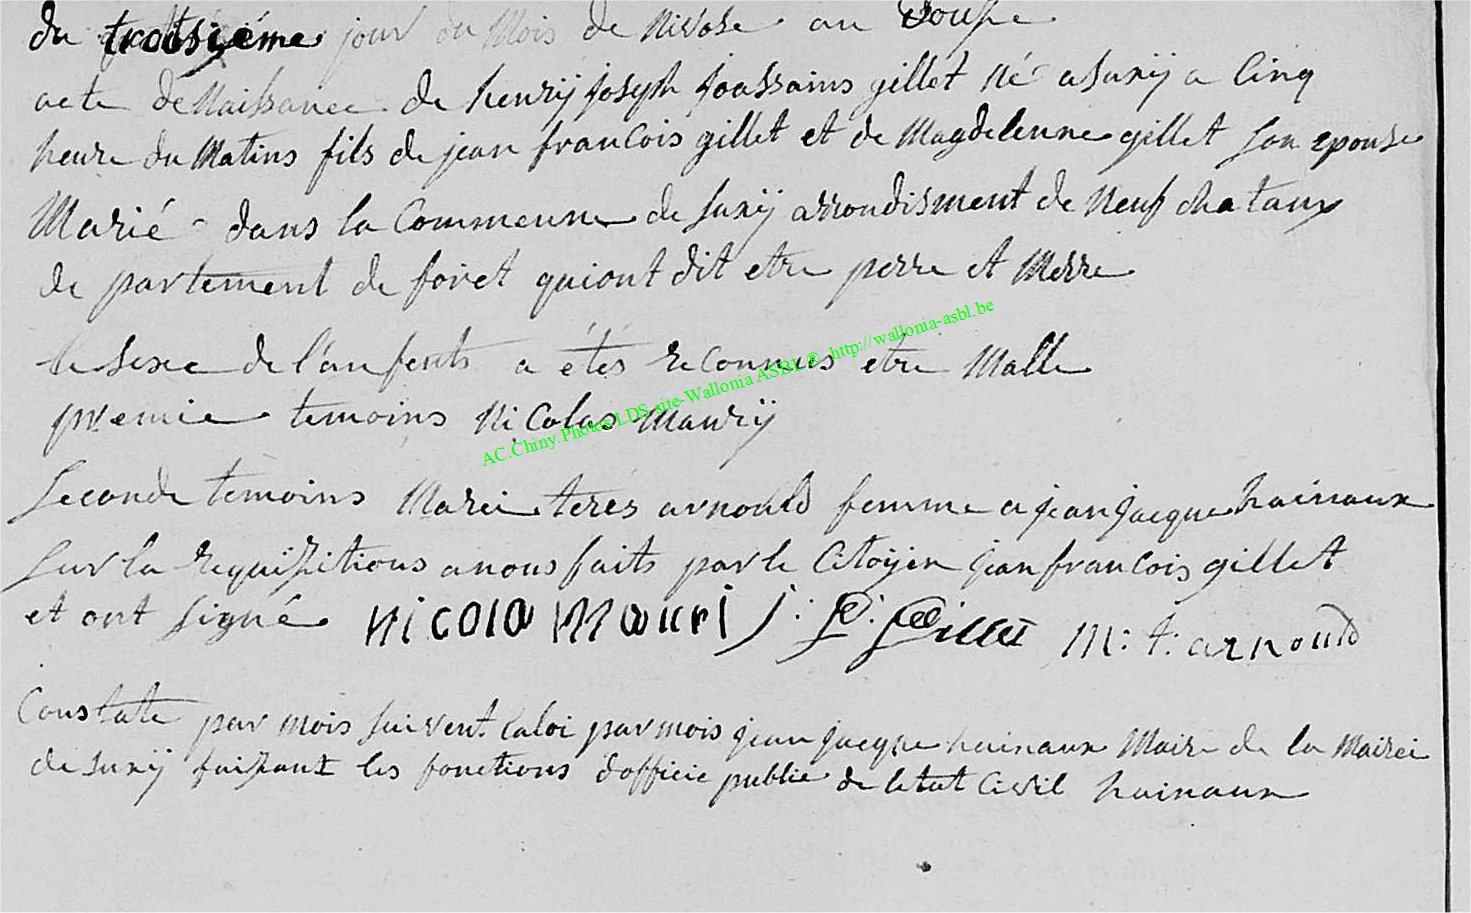 du troisiéme jour du Mois de Nivose an Douse
acte de Naissance de henrÿ joseph joassains gillet Né a Suxÿ a Cinq
heure du Matins fils de jean francois gillet et de Magdelenne gillet Son epouse
Marié dans la Commeune de Suxÿ arrondisment de Neuf chataux
de partement de foret qui ont dit etre perre et Merre
le Sexe de l'anfents a étés reconnus etre Malle
premie temoins Nicolas Maurÿ
Seconde temoins Marei teres arnould femme a jean jacque hainaux
Sur la requisitions a nous faits par le Citoÿen jean francois gillet
et ont Signé Nicola Mauri J: F: Gillet M: t: arnould
Constate par mois Suivent la loi par mois jean jacque hainaux Maire de la Mairei
de Suxÿ faisant les fonctions d'officie publie de letat Civil hainaux
AC.Chiny.Photos LDS site-Wallonia ASBL © http://wallonia-asbl.be